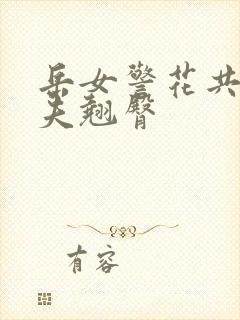 岳女警花共
夫翘臀
有容